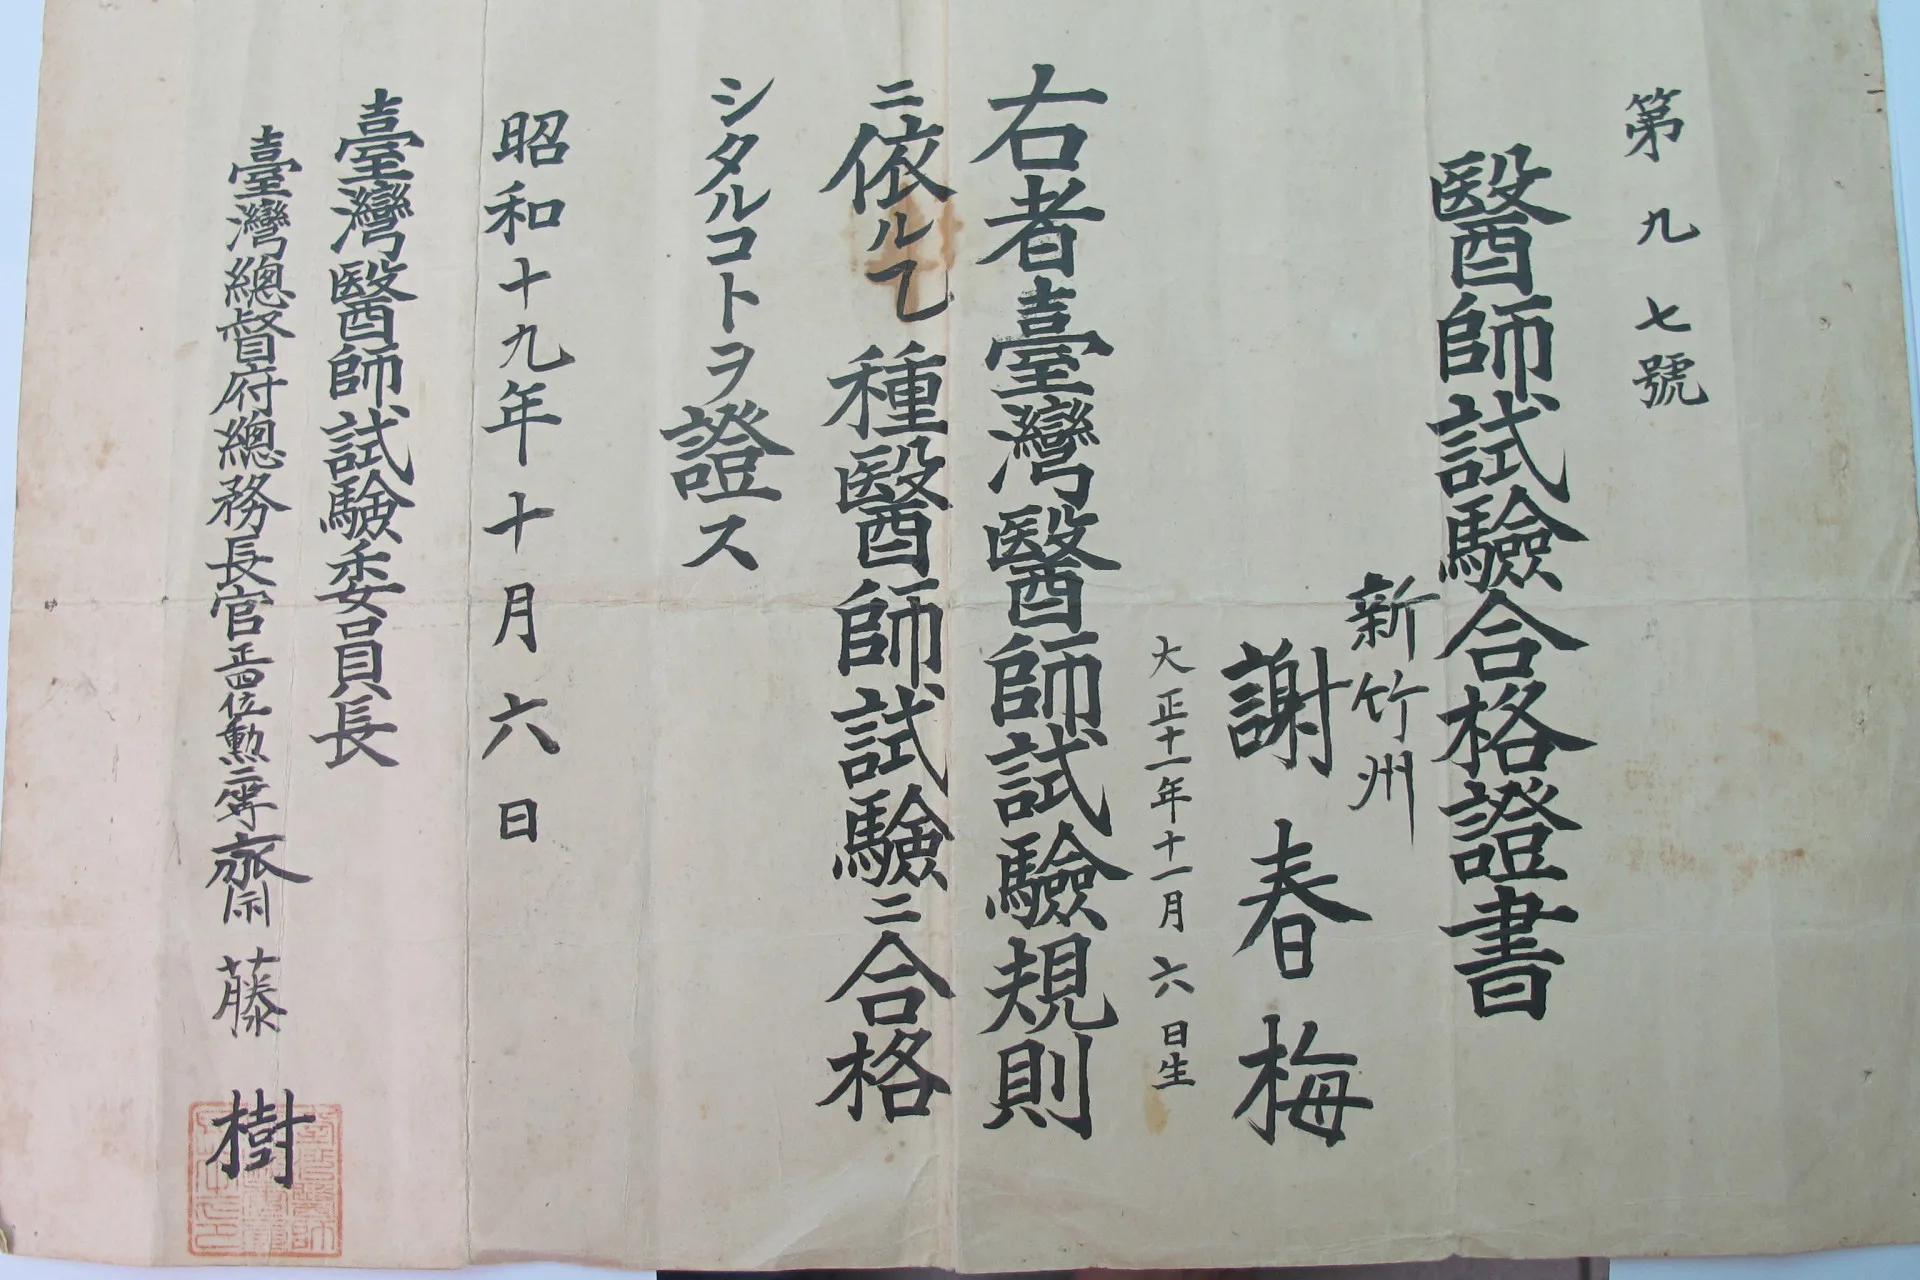 第九七號
醫師試驗合格證書
新竹州
謝春梅
大正十一年十一月六日生
右者臺灣醫師試驗規則
ニ依ル乙種醫師試驗ニ合格
シタルコトヲ證ス
昭和十九年十月六日
臺灣醫師試驗委員長
臺灣總督府總務長官正四位勲二等齋藤樹